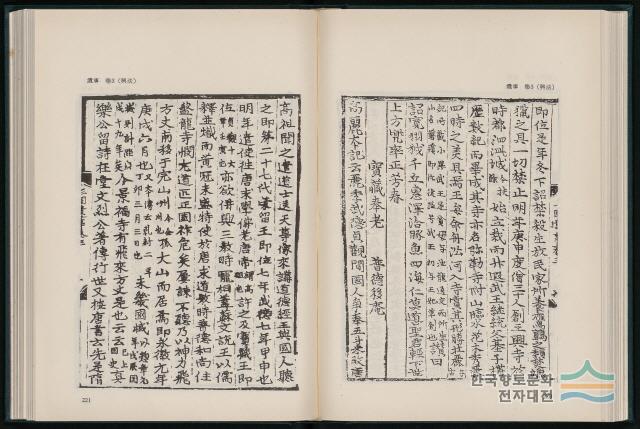 遺事 卷3 (興法)
即位是年冬下詔禁殺生放民家所養鷹鸇之類焚漁
獵之具一切禁止明年庚申度僧三十人創王興寺於
時都泗沘城今扶餘始立栽而升遐武王繼統父基子構
歷數紀而畢成其寺亦名彌勒寺附山臨水花木秀麗
四時之美具焉王每命舟沿河入寺賞其形勝壯麗
記所載小異武王是貧母與池龍通交而所生
小名薯蕷即位後諡號武王初與王妃草創也讚曰
詔寬狘狨千丘惠澤洽豚魚四海仁莫道聖君輕下世
上方兜率正芳春
寶藏奉老 普德移庵
高麗本記云麗季武德貞觀間國人爭奉五斗米教唐
遺事 卷3 (興法)
高祖聞之遣道士送天尊像來講道德經王與國人聽
之即第二十七代榮留王即位七年武德七年甲申也
明年遣使往唐求學佛老唐帝謂高祖也許之及寶藏王即
位貞觀十六年壬寅也亦欲併興三教時寵相蓋蘇文說王以儒
釋並熾而黃冠未盛特使於唐求道教時普德和尚住
盤龍寺憫左道匹正國祚危矣屢諫不聽乃以神力飛
方丈南移于完山州今全州也孤大山而居焉即永徽元年
庚戌六月也又本傳云乾封二年丁卯三月三日也未幾國滅以揔章元年戊辰國
滅則計距庚戌十九年矣今景福寺有飛來方丈是也云云已上國史真
樂公留詩在堂文烈公著傳行世又按唐書云先是隋
221
한국향토문화
전자대전